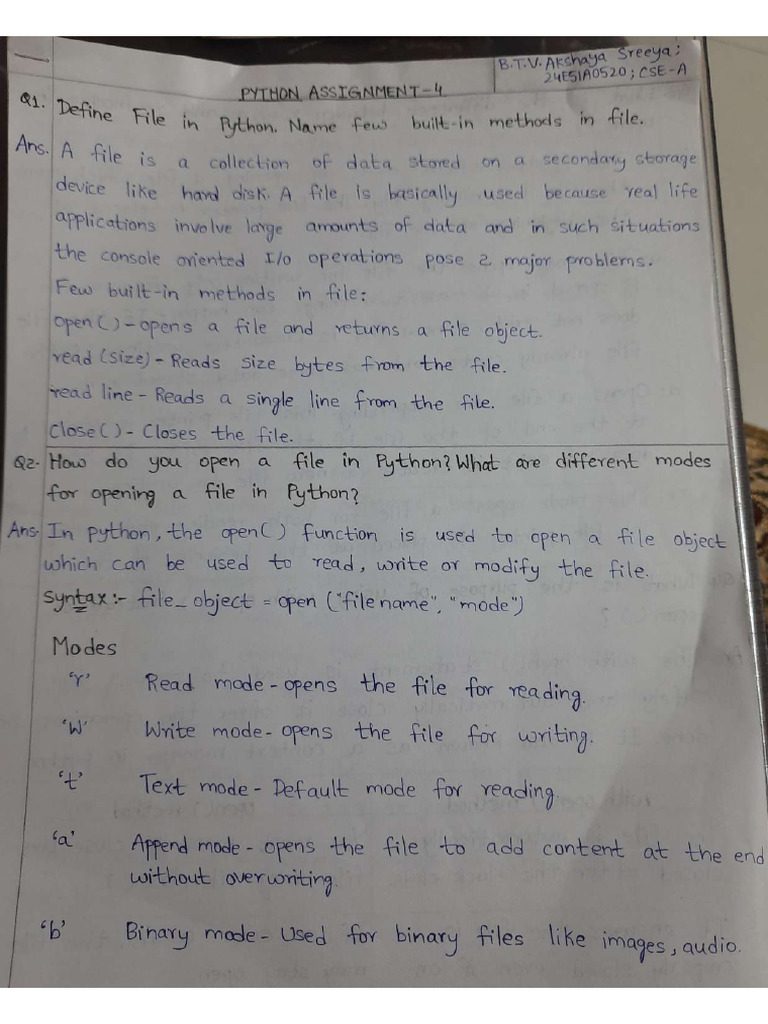 B.T.V. Akshaya Sreeya;
24E51A0520; CSE-A
PYTHON ASSIGNMENT-4
Q1. Define File in Python. Name few built-in methods in file.
Ans. A file is a collection of data stored on a secondary storage
device like hard disk. A file is basically used because real life
applications involve large amounts of data and in such situations
the console oriented I/o operations pose 2 major problems.
Few built-in methods in file:
open() - opens a file and returns a file object.
read (size) - Reads size bytes from the file.
read line - Reads a single line from the file.
close() - Closes the file.
Q2. How do you open a file in Python? What are different modes
for opening a file in Python?
Ans. In python, the open() function is used to open a file object
which can be used to read, write or modify the file.
Syntax :- file_object = open ("file name", "mode")
Modes
'r' Read mode - opens the file for reading.
'W' Write mode - opens the file for writing.
't' Text mode - Default mode for reading.
'a' Append mode - opens the file to add content at the end
without overwriting.
'b' Binary mode - Used for binary files like images, audio.